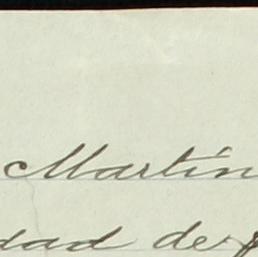 Martín
dad de